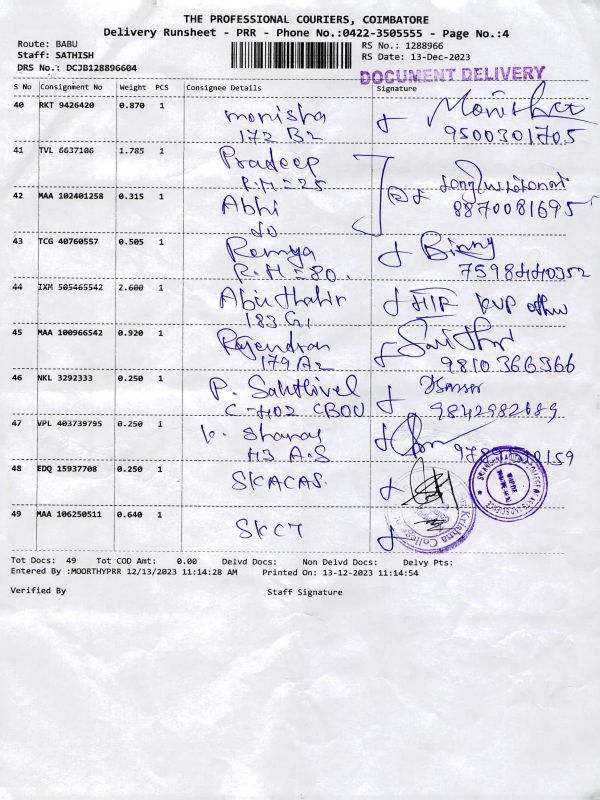 THE PROFESSIONAL COURIERS, COIMBATORE
Delivery Runsheet - PRR - Phone No.:0422-3505555 - Page No.:4
Route: BABU
Staff: SATHISH
DRS No.: DCJB128896604
RS No.: 1288966
RS Date: 13-Dec-2023
DOCUMENT DELIVERY
S No Consignment No Weight PCS Consignee Details Signature
40 RKT 9426420 0.870 1 monisha
172 B2 9500301705
41 TVL 6637106 1.785 1 Pradeep
R.H=25
42 MAA 102401258 0.315 1 Abhi 8870081695
do
43 TCG 40760557 0.505 1 Remya Binny
R.H=80. 7598440352
44 IXM 505465542 2.600 1 Abuthahir
183 G1
45 MAA 100966542 0.920 1 Rajendran
179 A2 9810366366
46 NKL 3292333 0.250 1 P. Sakthivel
C-402 CBOU 9842982689
47 VPL 403739795 0.250 1
H3 A.S
48 EDQ 15937708 0.250 1 SKACAS
49 MAA 106250511 0.640 1 SKCT
Tot Docs: 49 Tot COD Amt: 0.00 Delvd Docs: Non Delvd Docs: Delvy Pts:
Entered By :MOORTHYPRR 12/13/2023 11:14:28 AM Printed On: 13-12-2023 11:14:54
Verified By Staff Signature